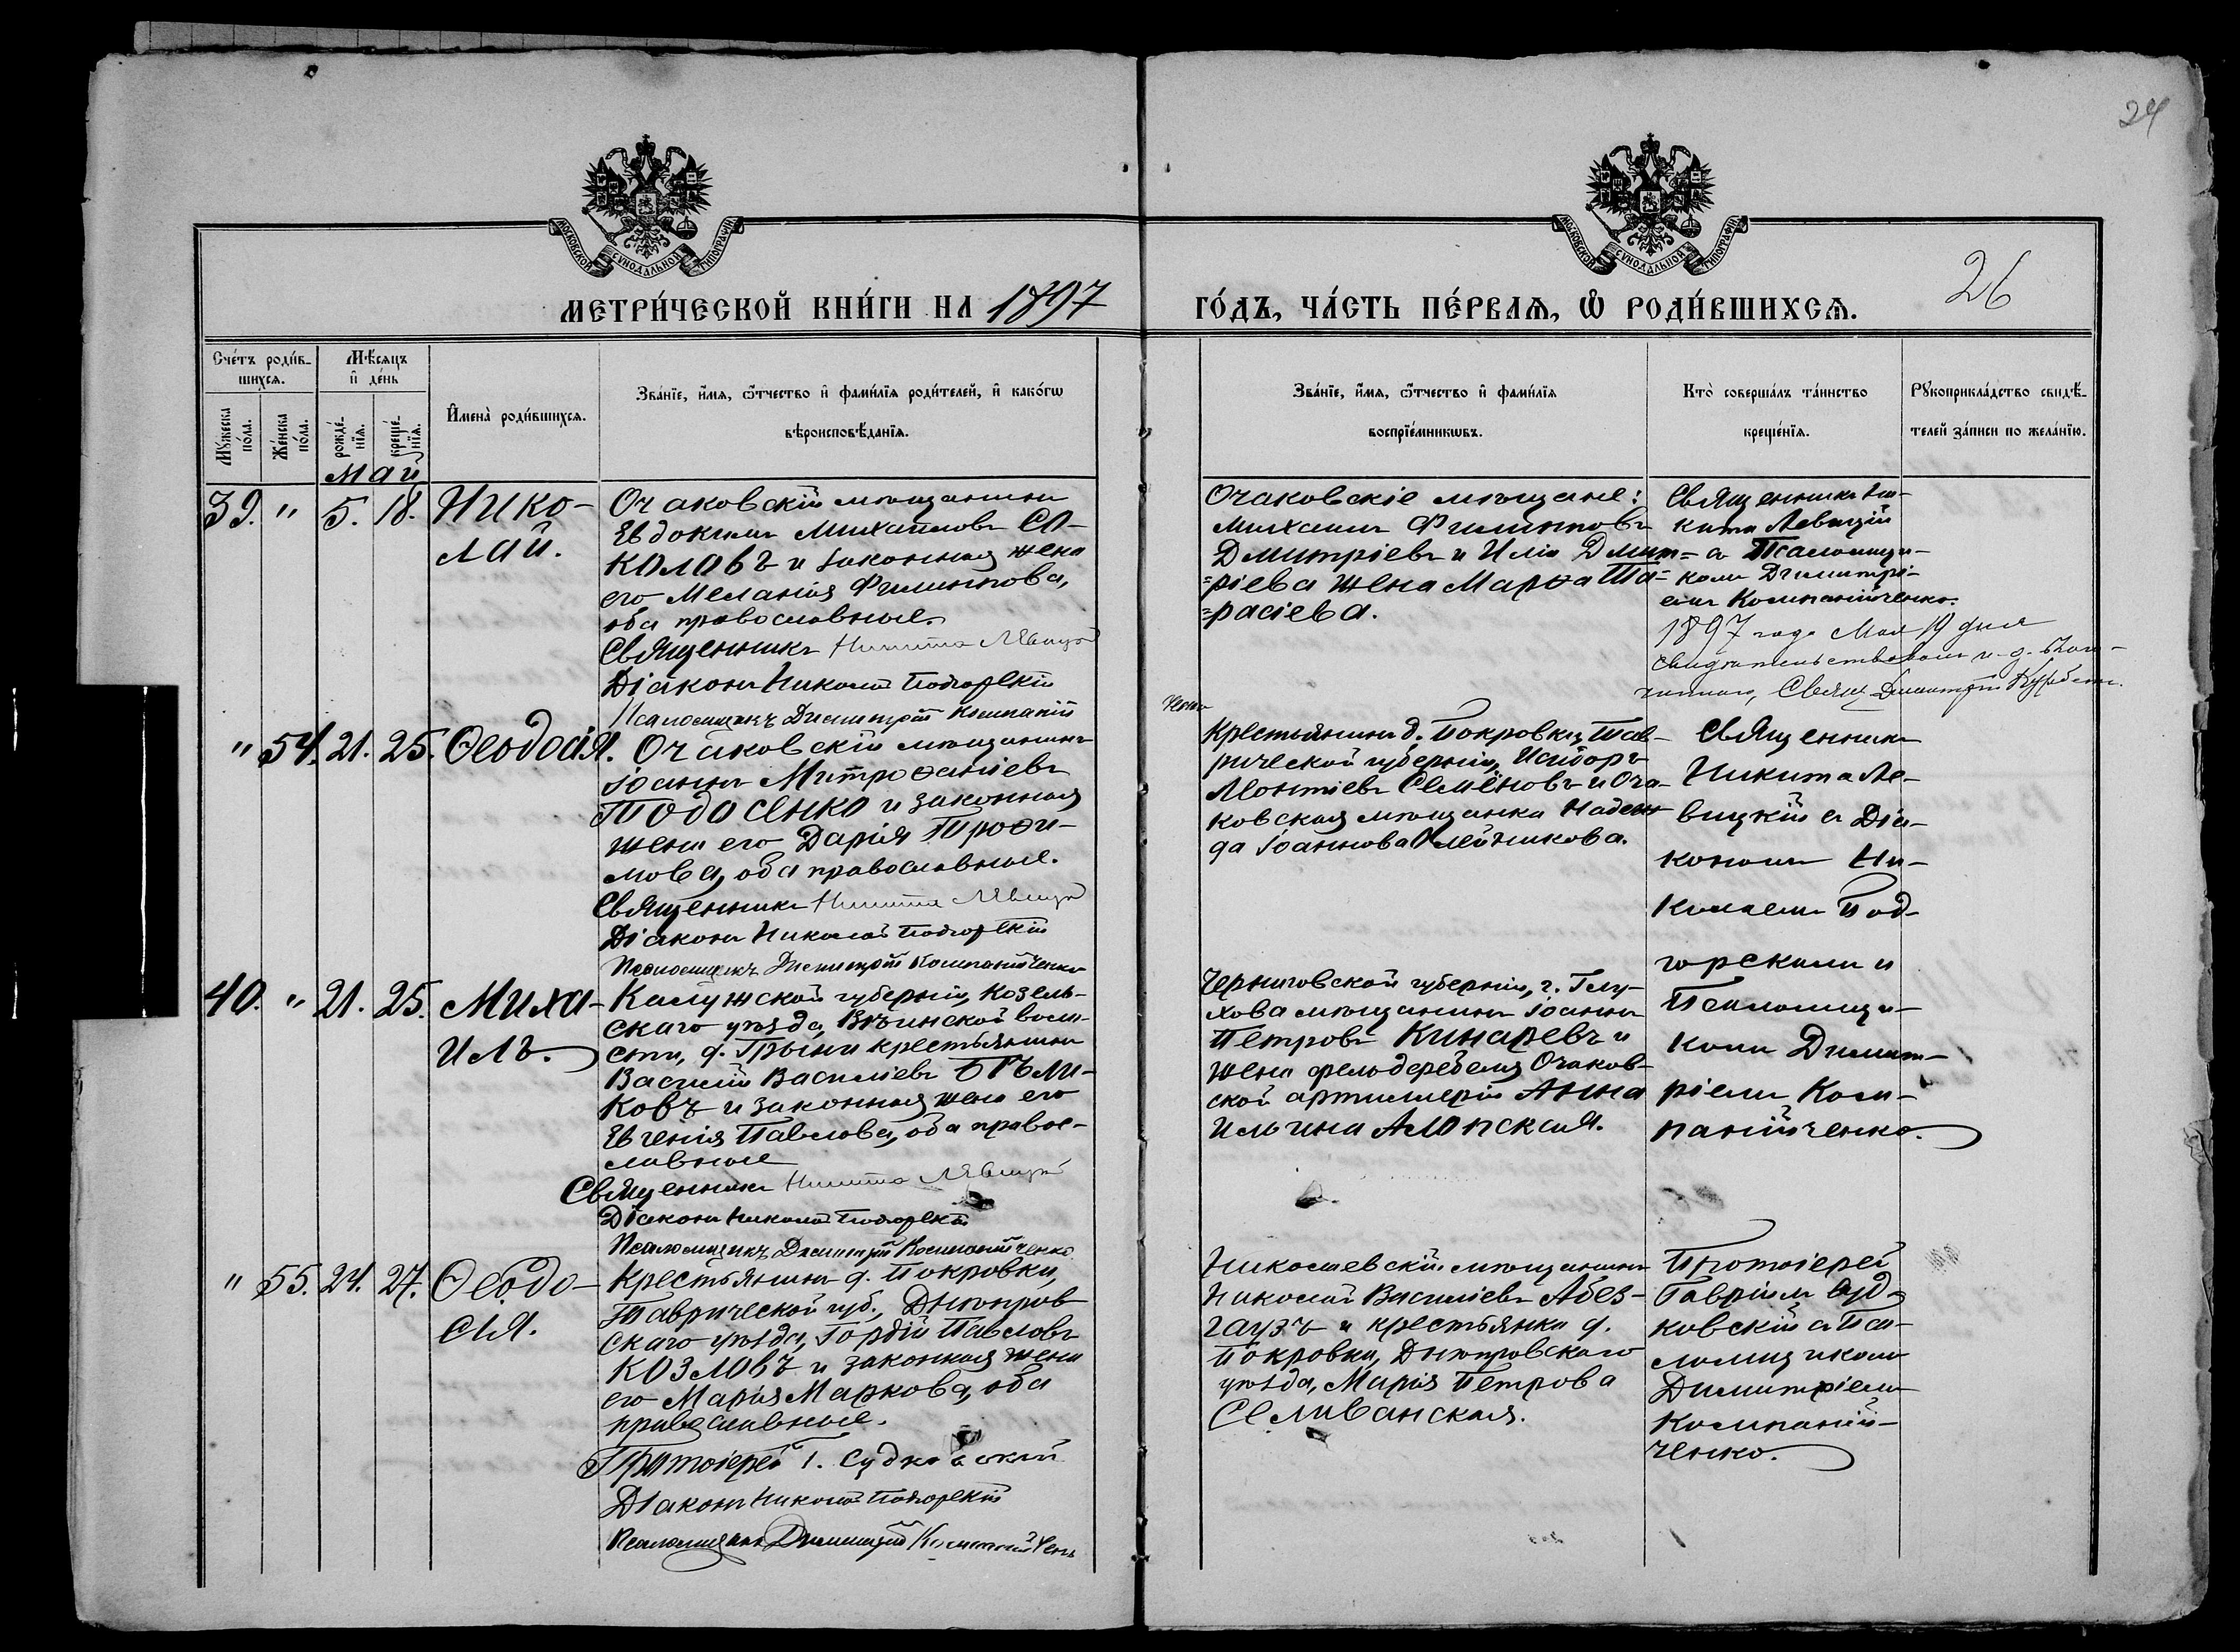 24
МОСКОВСКОЙ СѴНОДАЛЬНОЙ ТИПОГРАФІИ
МОСКОВСКОЙ СѴНОДАЛЬНОЙ ТИПОГРАФІИ
26
МЕТРИ́ЧЕСКОЙ КНИ́ГИ НА 1897
ГО́ДЪ, ЧА́СТЬ ПЕ́РВАѦ, Ѽ РОДИ́ВШИХСѦ.
Сче́тъ роди́в-
шихсѧ.
Мѣ́сяцъ
и҆ де́нь
Мꙋ́жеска по́ла.
Же́нска по́ла.
рожде́-нїѧ.
креще́-нїѧ.
И҆мена̀ роди́вшихсѧ.
Зва́нїе, и҆́мѧ, ѻ҆́тчество и҆ фами́лїѧ роди́телей, и҆ како́гѡ
вѣроисповѣ́данїѧ.
Зва́нїе, и҆́мѧ, ѻ҆́тчество и҆ фами́лїѧ
воспрїе́мникѡвъ.
Кто̀ соверша́лъ та́инство
креще́нїѧ.
Рꙋкоприкла́дство свидѣ́-
телей за́писи по жела́нїю.
Май
39. " 5. 18. Нико-
лай.
Очаковскій мѣщанинъ
Евдокимъ Михайловъ СО-
КОЛОВЪ и законная жена
его Меланія Филиппова,
оба православные.
Священникъ Никита Левицкій
Діаконъ Николай Подгорскій
Псаломщикъ Димитрій Компаній
ченко
Очаковскіе мѣщане:
Михаилъ Филипповъ
Дмитріевъ и Иліи Дмит=
=ріева жена Марѳа Та=
=расіева.
Священникъ Ни-
кита Левицкій
съ Псаломщи-
комъ Димитрі-
емъ Компанійченко.
1897 года Мая 19 дня
свидѣтельствовалъ и. д. Благо-
чиннаго, Свящ. Димитрій
" 54. 21. 25. Ѳеодосія.
Очаковскій мѣщанинъ
Іоаннъ Митрофаніевъ
ТОДОСЕНКО и законная
жена его Дарія Трофи-
мова, оба православные.
Священникъ Никита Левицкій
Діаконъ Николай Подгорскій
Псаломщикъ Димитрій Компанійченко
Крестьянинъ д. Покровки, Тав-
рической губерніи, Исидоръ
Леонтіевъ Семёновъ и Оча-
ковская мѣщанка Надеж-
да Іоаннова Олейникова.
Священникъ
Никита Ле-
вицкій съ Діа-
кономъ Ни-
колаемъ Под-
горскимъ и
Псаломщи-
комъ Димит-
ріемъ Ком-
панійченко.
40. " 21. 25. Миха-
илъ.
Калужской губерніи, Козель-
скаго уѣзда, волос-
сти, д. Грыни крестьянинъ
Василій Васильевъ БѢЛИ-
КОВЪ и законная жена его
Евгенія Павлова, оба право-
славные
Священникъ Никита Левицкій
Діаконъ Николай Подгорскій
Псаломщикъ Димитрій Компанійченко
Черниговской губерніи, г. Глу-
хова мѣщанинъ Іоаннъ
Петровъ Кинаревъ и
жена фельдфебеля Очаков-
ской артиллеріи Анна
Ильина Алопская.
" 55. 24. 27. Ѳеодо-
сія.
Крестьянинъ д. Покровки,
Таврической губ., Днѣпров-
скаго уѣзда, Гордій Павловъ
КОЗЛОВЪ и законная жена
его Марія Маркова, оба
православные.
Протоіерей Г. Судковскій
Діаконъ Николай Подгорскій
Псаломщикъ Димитрій Компанійченко
Николаевскій мѣщанинъ
Николай Василіевъ Абез-
гаузъ и крестьянка д.
Покровки, Днѣпровскаго
уѣзда, Марія Петрова
Селиванская.
Протоіерей
Гавріилъ Суд-
ковскій съ Пса-
ломщикомъ
Димитріемъ
Компаній-
ченко.